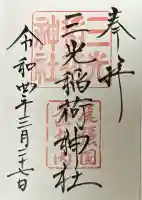 奉拝
三光稲荷神社
令和四年三月二十七日
三光
神社